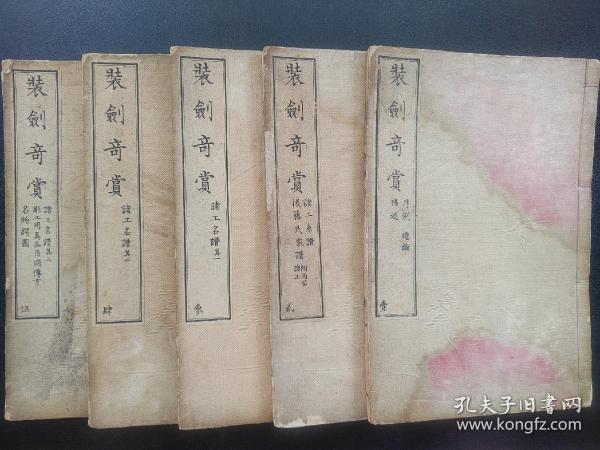 裝劍奇賞
序例 總論
博效
壹
裝劍奇賞
諸工系譜
後藤氏家譜
貳
裝劍奇賞
諸工名譜其一
參
裝劍奇賞
諸工名譜其一
肆
裝劍奇賞
諸工名譜其二
彫工用具品目同傳方
名物鍔圖
伍
孔夫子旧书网
www.kongfz.com